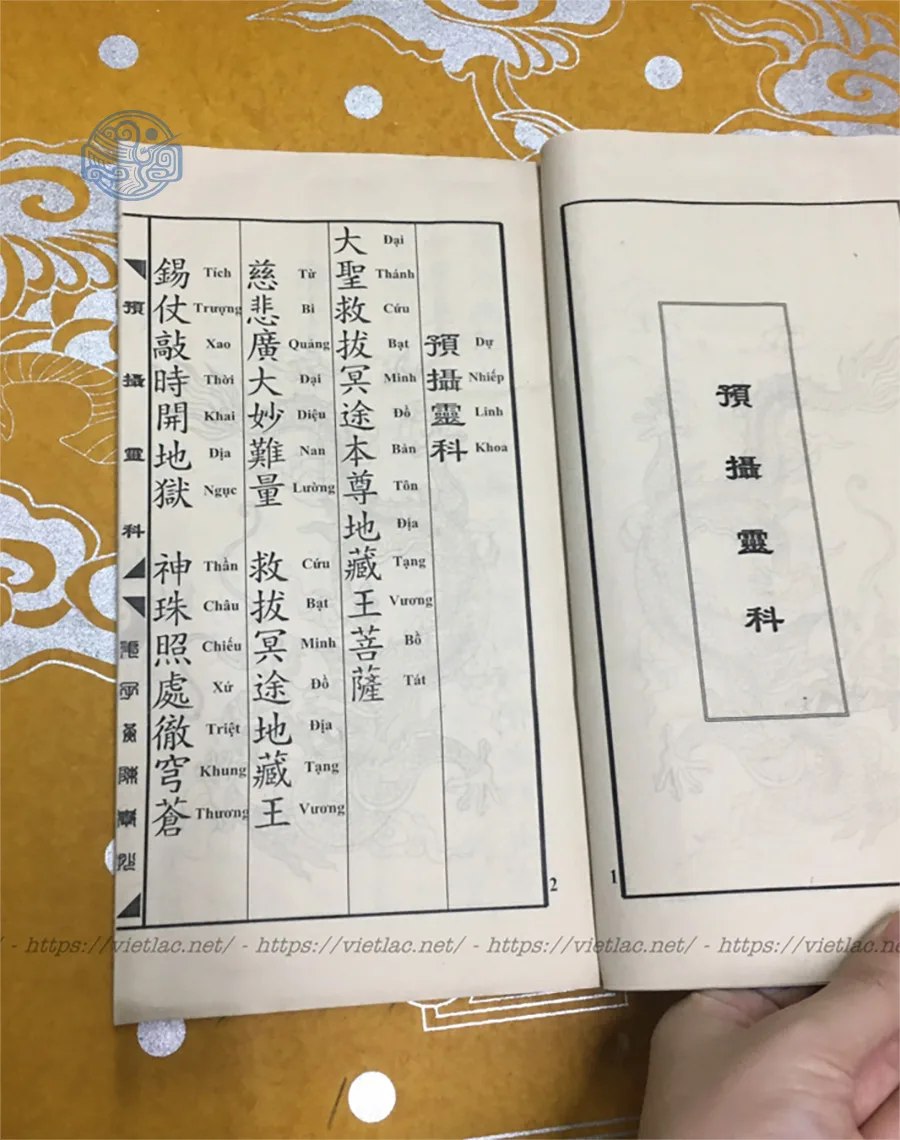 預攝靈科
1
預 Dự
攝 Nhiếp
靈 Linh
科 Khoa
大 Đại
聖 Thánh
救 Cứu
拔 Bạt
冥 Minh
途 Đồ
本 Bản
尊 Tôn
地 Địa
藏 Tạng
王 Vương
菩 Bồ
薩 Tát
慈 Từ
悲 Bi
廣 Quảng
大 Đại
妙 Diệu
難 Nan
量 Lường
救 Cứu
拔 Bạt
冥 Minh
途 Đồ
地 Địa
藏 Tạng
王 Vương
錫 Tích
仗 Trượng
敲 Xao
時 Thời
開 Khai
地 Địa
獄 Ngục
神 Thần
珠 Châu
照 Chiếu
處 Xứ
徹 Triệt
穹 Khung
蒼 Thương
預攝靈科
2
/ - https://vietlac.net/ - https://vietlac.net/ - https://vietlac.net/ - https://vietlac.net/